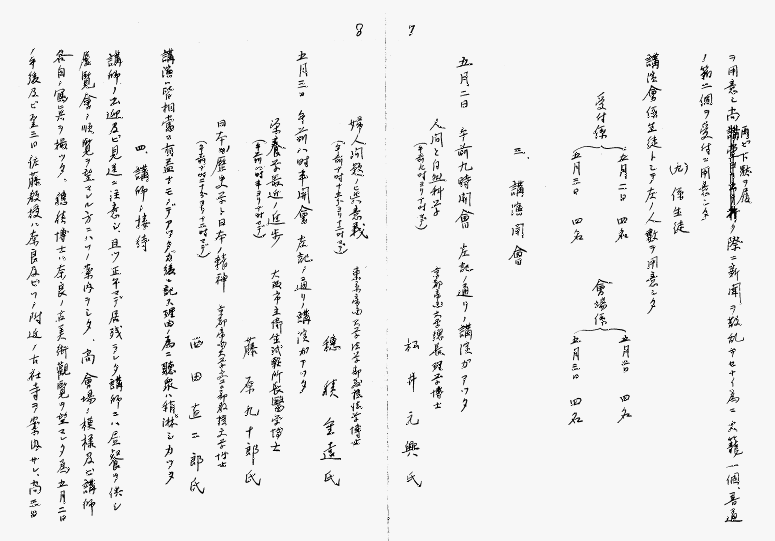 7
ヲ用意シ尚 再ビ下駄ヲ履ク際ニ新聞ヲ散乱サセナイ為ニ大籠一個、普通
ノ籠二個ヲ受付ニ用意シタ
(九) 係生徒
講演會係生徒トシテ左ノ人数ヲ用意シタ
受付係 五月二日 四名 五月三日 四名
會場係 五月二日 四名 五月三日 四名
三、講演開會
五月二日 午前九時開會 左記ノ通リ講演ガアツタ
人間ト自然科学 京都帝国大学総長理学博士 松井元興氏
8
婦人問題ノ真意義 東京帝国大学法学部教授法学博士 穂積重遠氏
五月三日 午前八時半開會 左記ノ通リ講演ガアツタ
栄養学最近ノ進歩 大阪市立衛生試験所長醫学博士 藤原九十郎氏
日本ノ歴史ト日本ノ精神 京都帝国大学文学部教授文学博士 西田直二郎氏
講演ハ皆相當ニ有益ナモノデアツタガ後ニ記ス理由ノ為ニ聽衆ハ稍淋シカツタ
四、講師ノ接待
講師ノ出迎及ビ見送ニ注意シ、且ツ正午マデ居残ラレタ講師ニハ昼餐ヲ供シ
展覧會ノ順覧ヲ望マレル方ニハソノ案内ヲシタ、尚會場ノ模様及ビ講師
各自ノ寫真ヲ撮ツタ、穂積博士ハ奈良ノ古美術観覧ヲ望マレタ為五月二日
ノ午後及ビ翌三日佐藤教授ハ奈良及ビソノ附近ノ古社寺ヲ案内サレ、尚三日